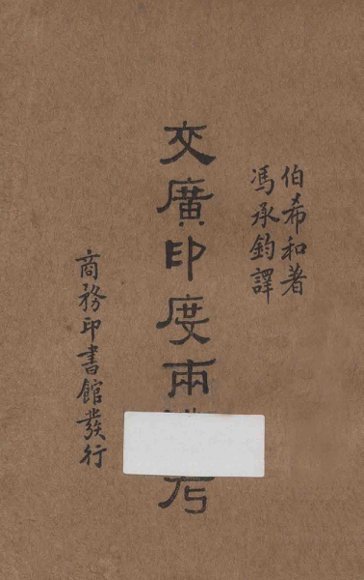 伯希和著
馮承鈞譯
交廣印度兩考
商務印書館發行